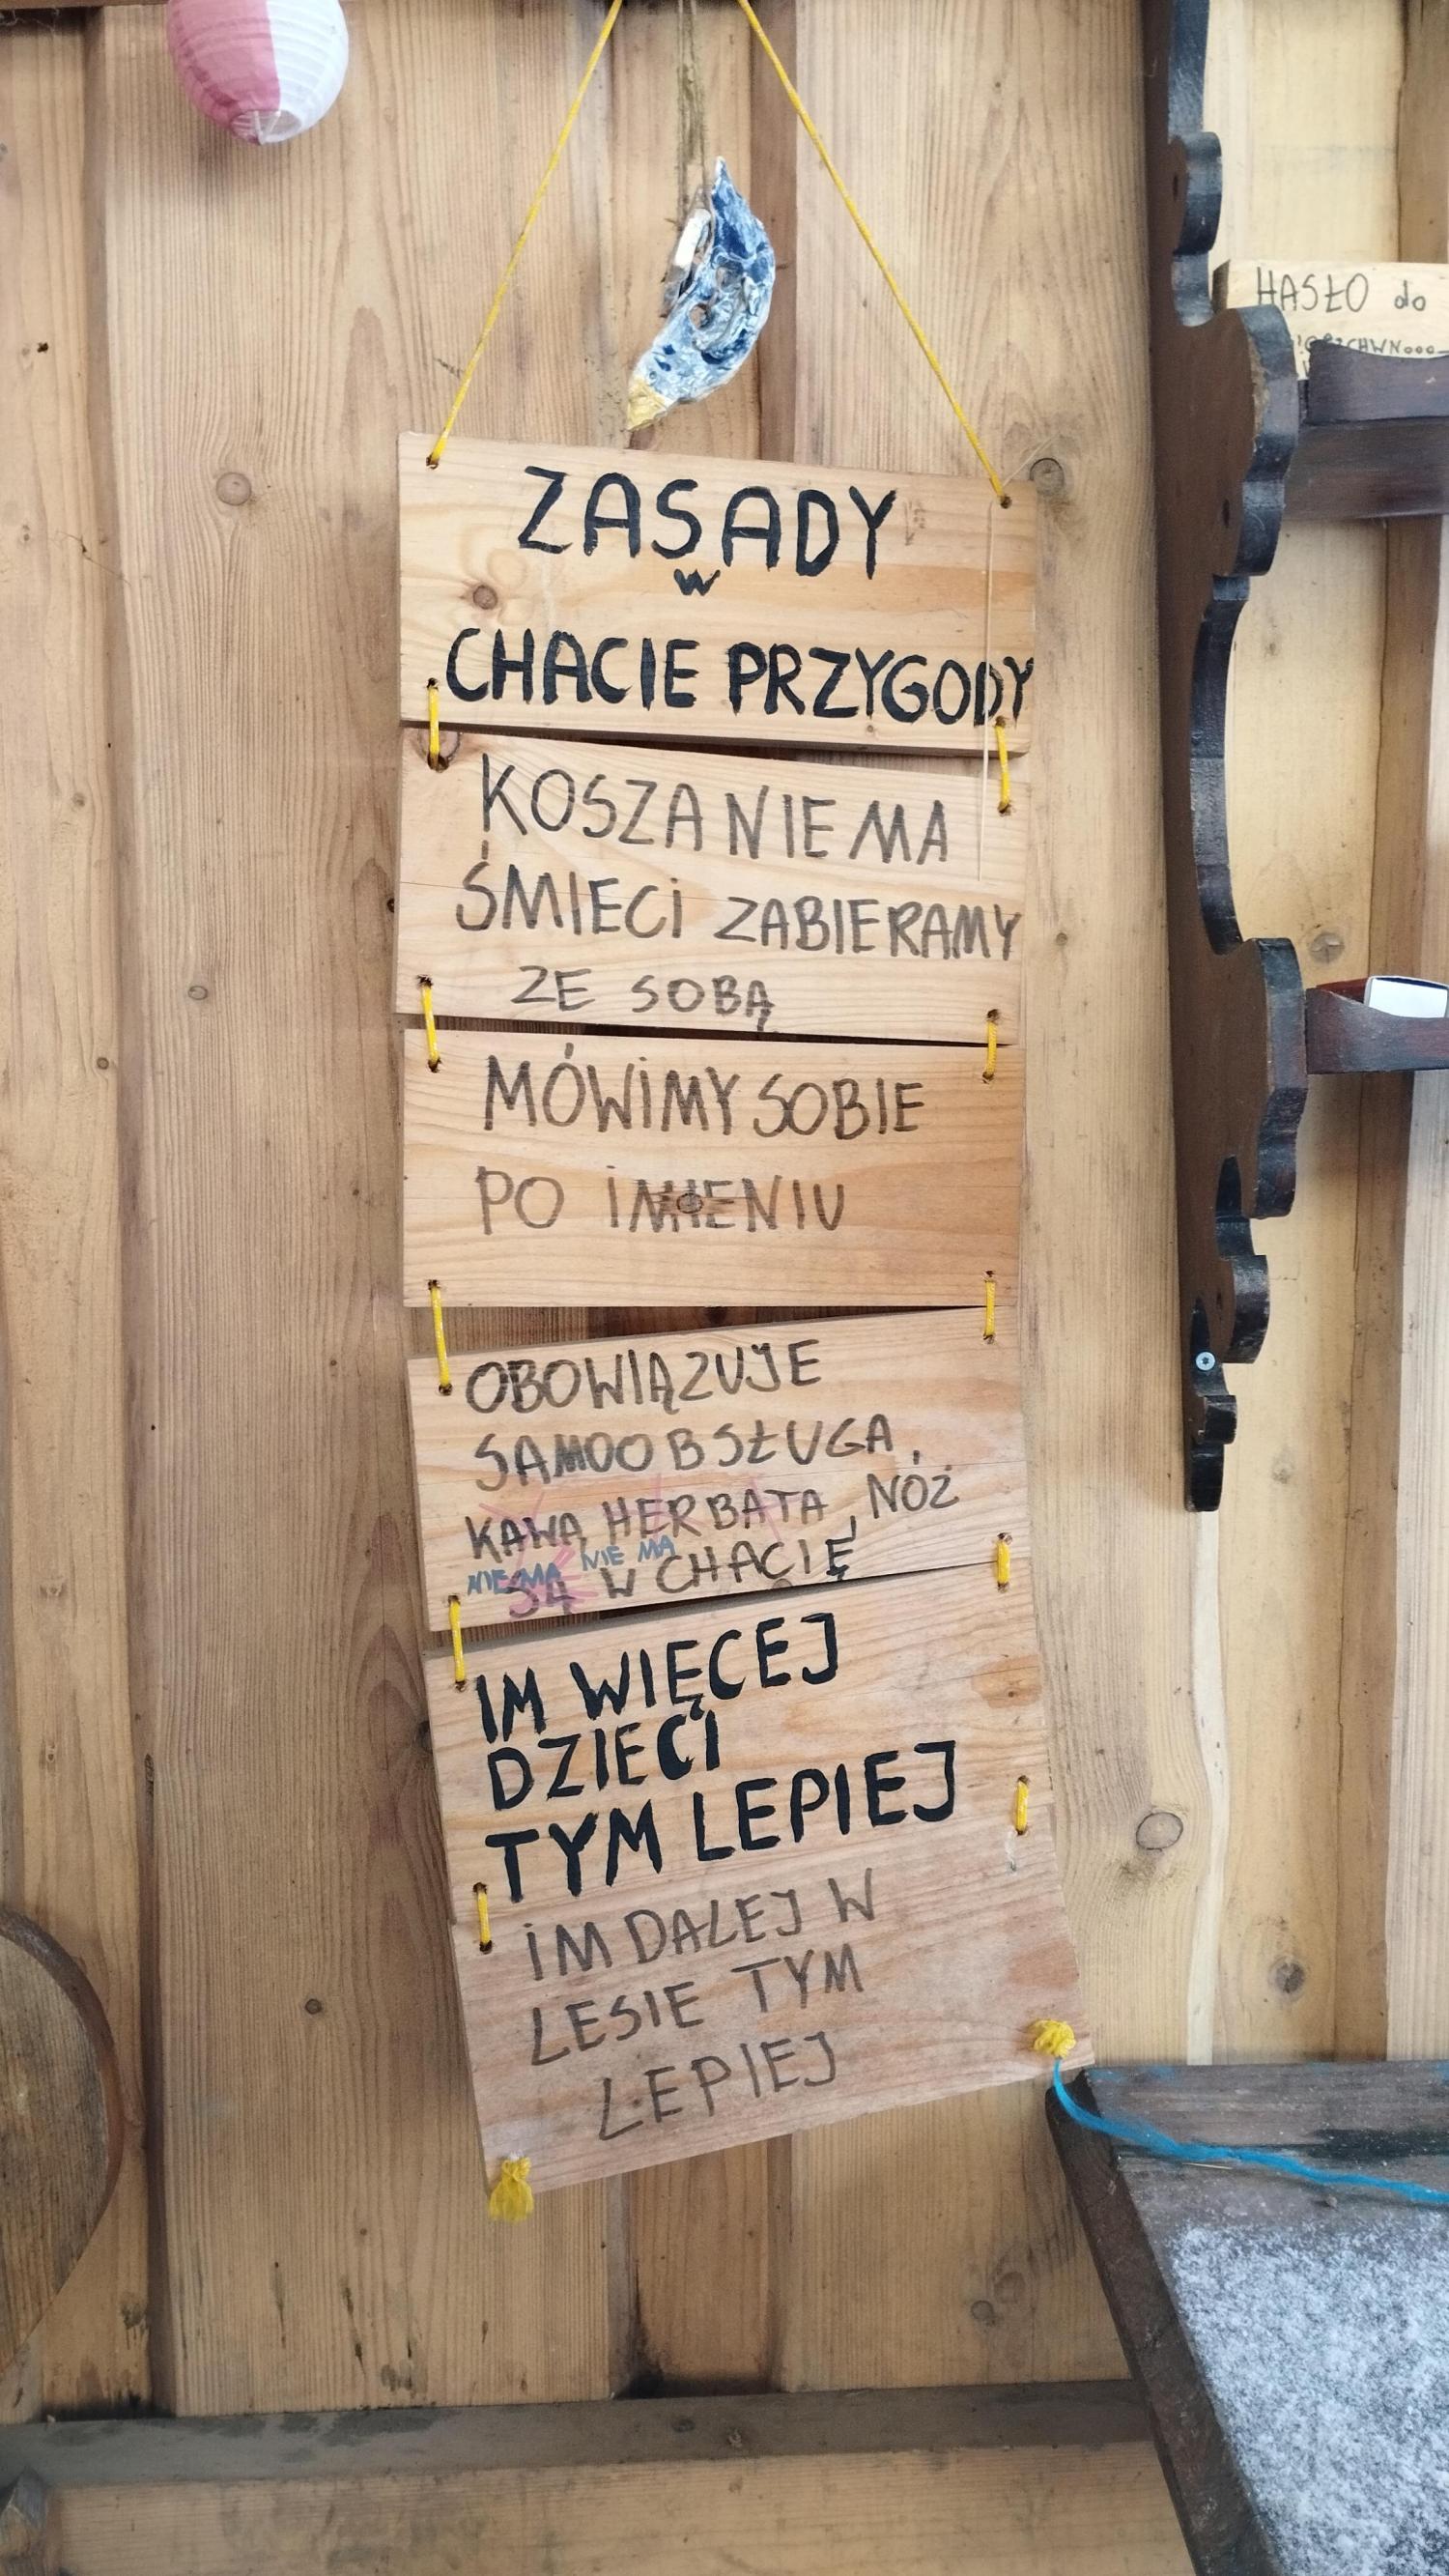 HASŁO do
ZASADY
w
CHACIE PRZYGODY
KOSZA NIE MA
ŚMIECI ZABIERAMY
ZE SOBĄ
MÓWIMY SOBIE
PO IMIENIU
OBOWIĄZUJE
SAMOOBSŁUGA,
KAWA, HERBATA, NÓŻ
NIE MA NIE MA
SĄ W CHACIĘ
IM WIĘCEJ
DZIECI
TYM LEPIEJ
IM DALEJ W
LESIE TYM
LEPIEJ